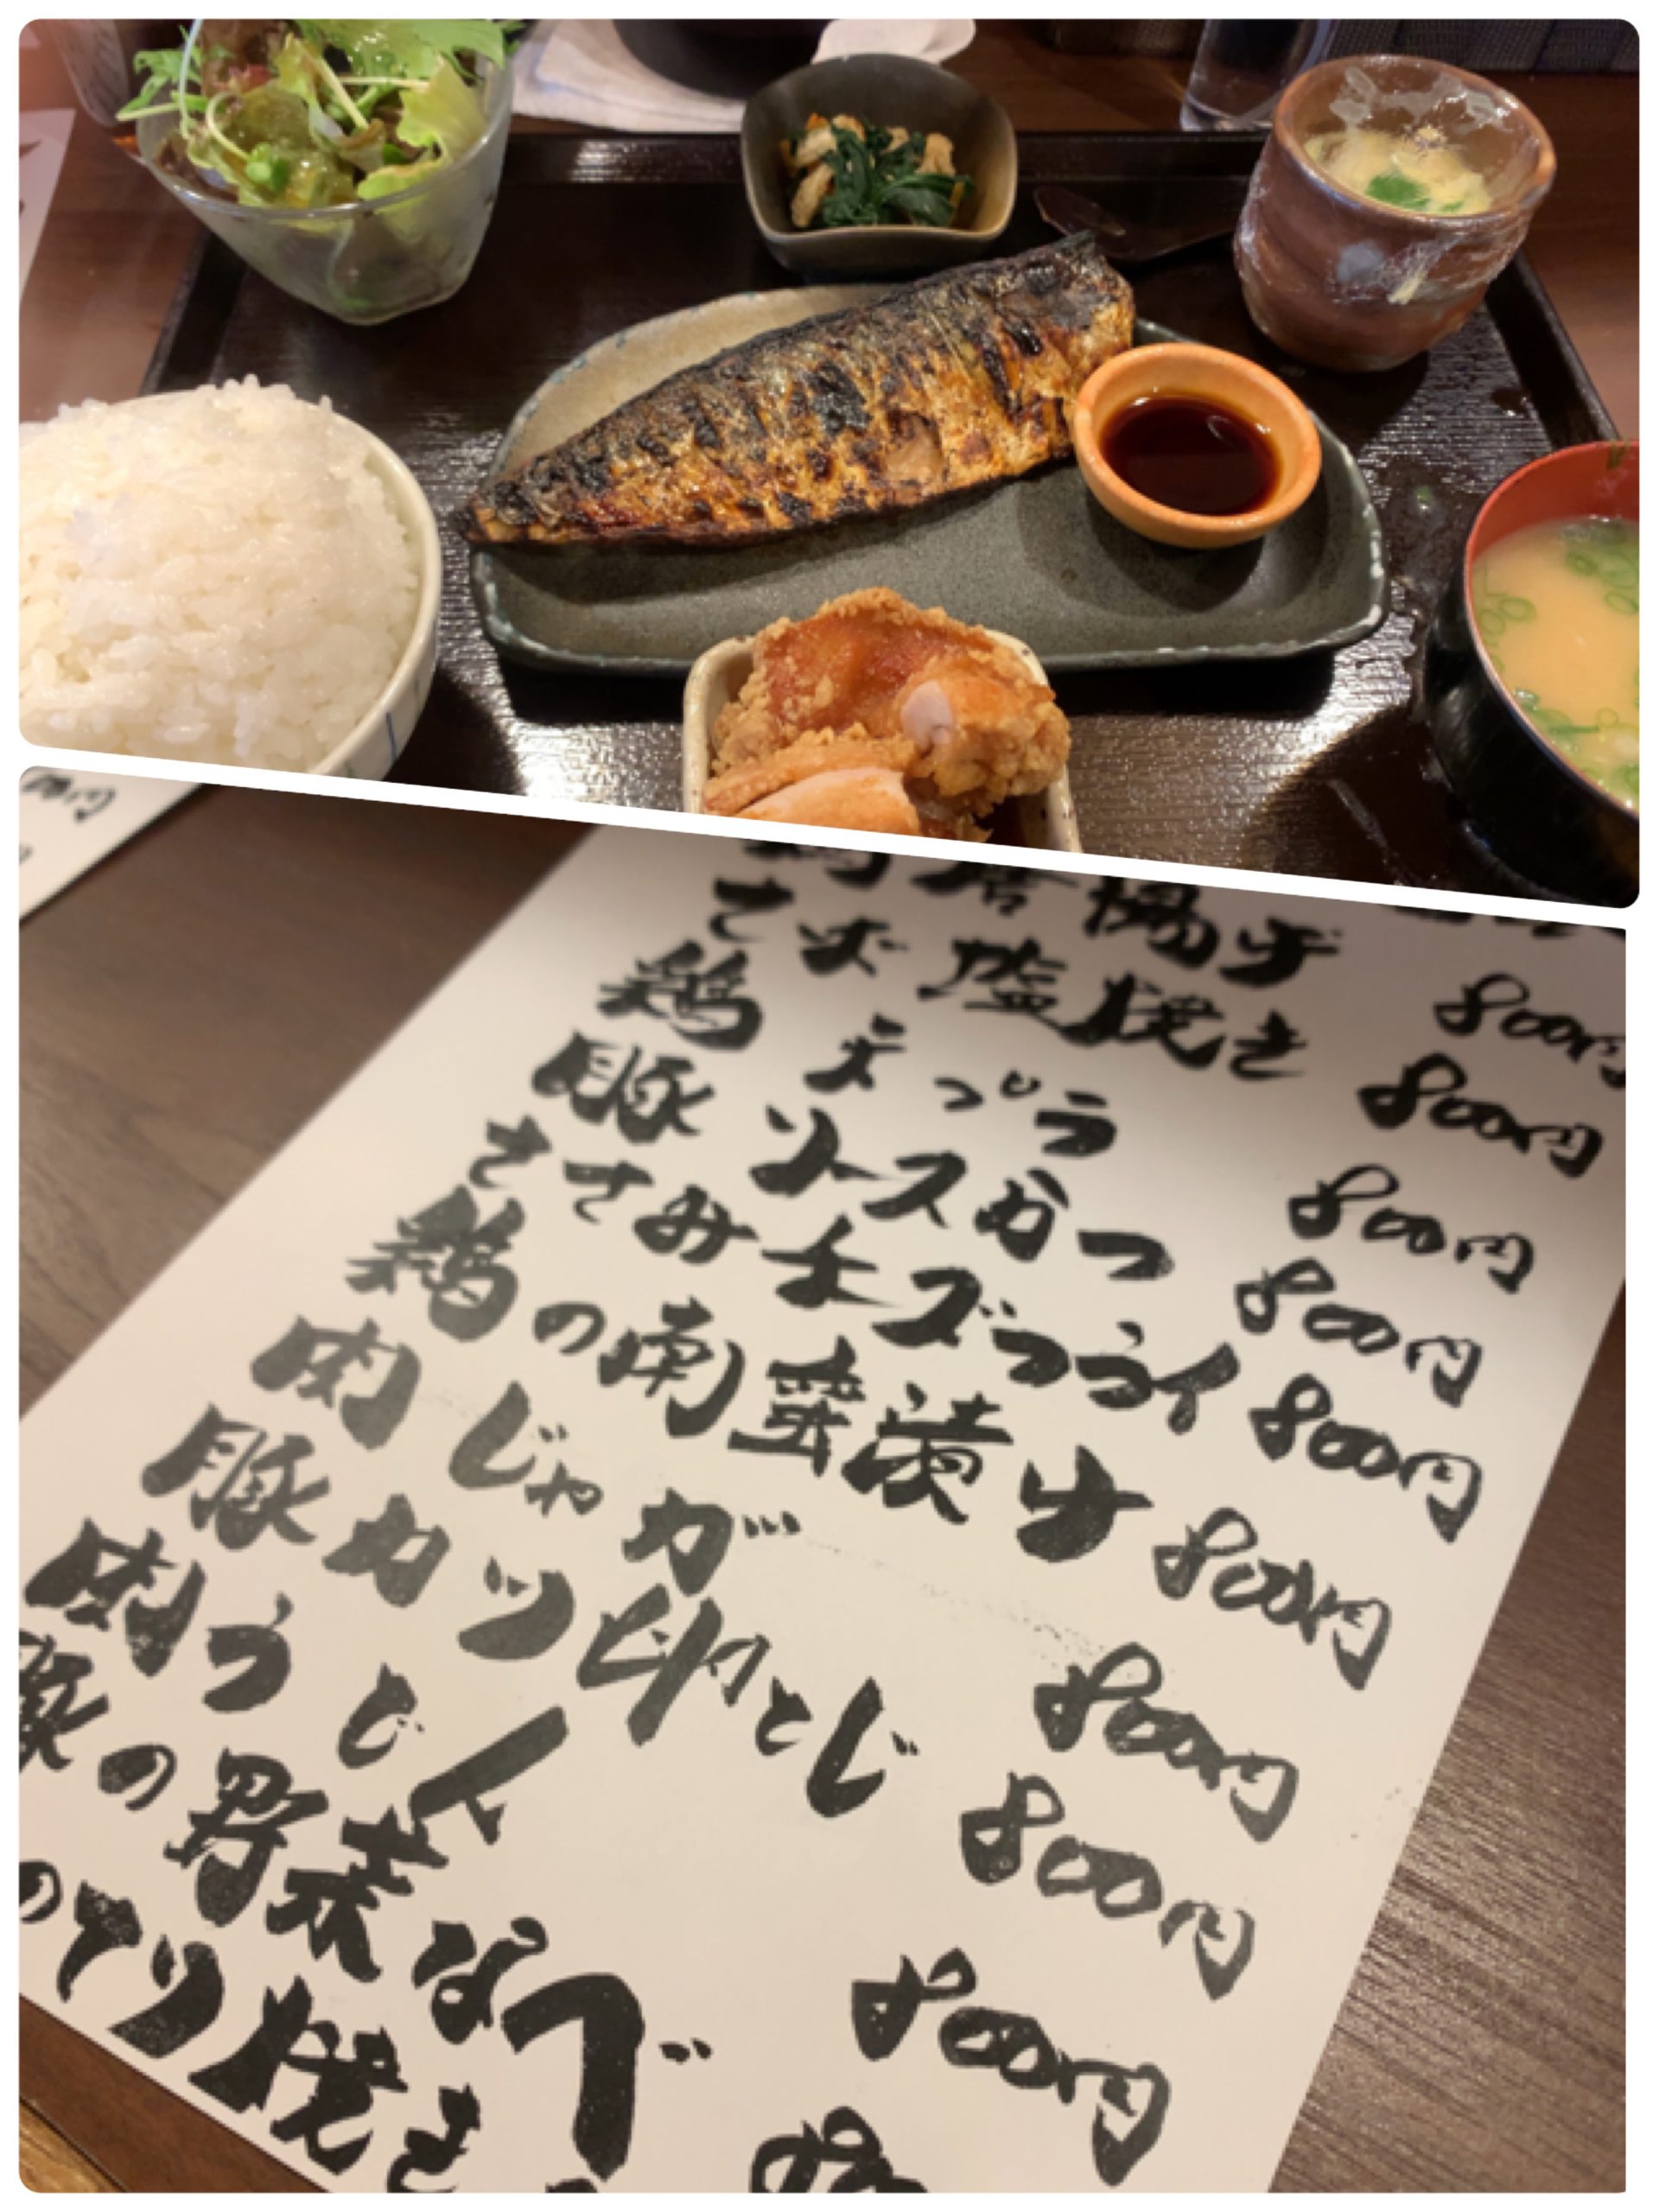 鶏唐揚げ 800円
さば塩焼き 800円
鶏天ぷら 800円
豚ソースかつ 800円
ささみチーズフライ 800円
鶏の南蛮漬け 800円
肉じゃが 800円
豚カツ卵とじ 800円
肉うどん 800円
豚の野菜なべ
のてり焼き